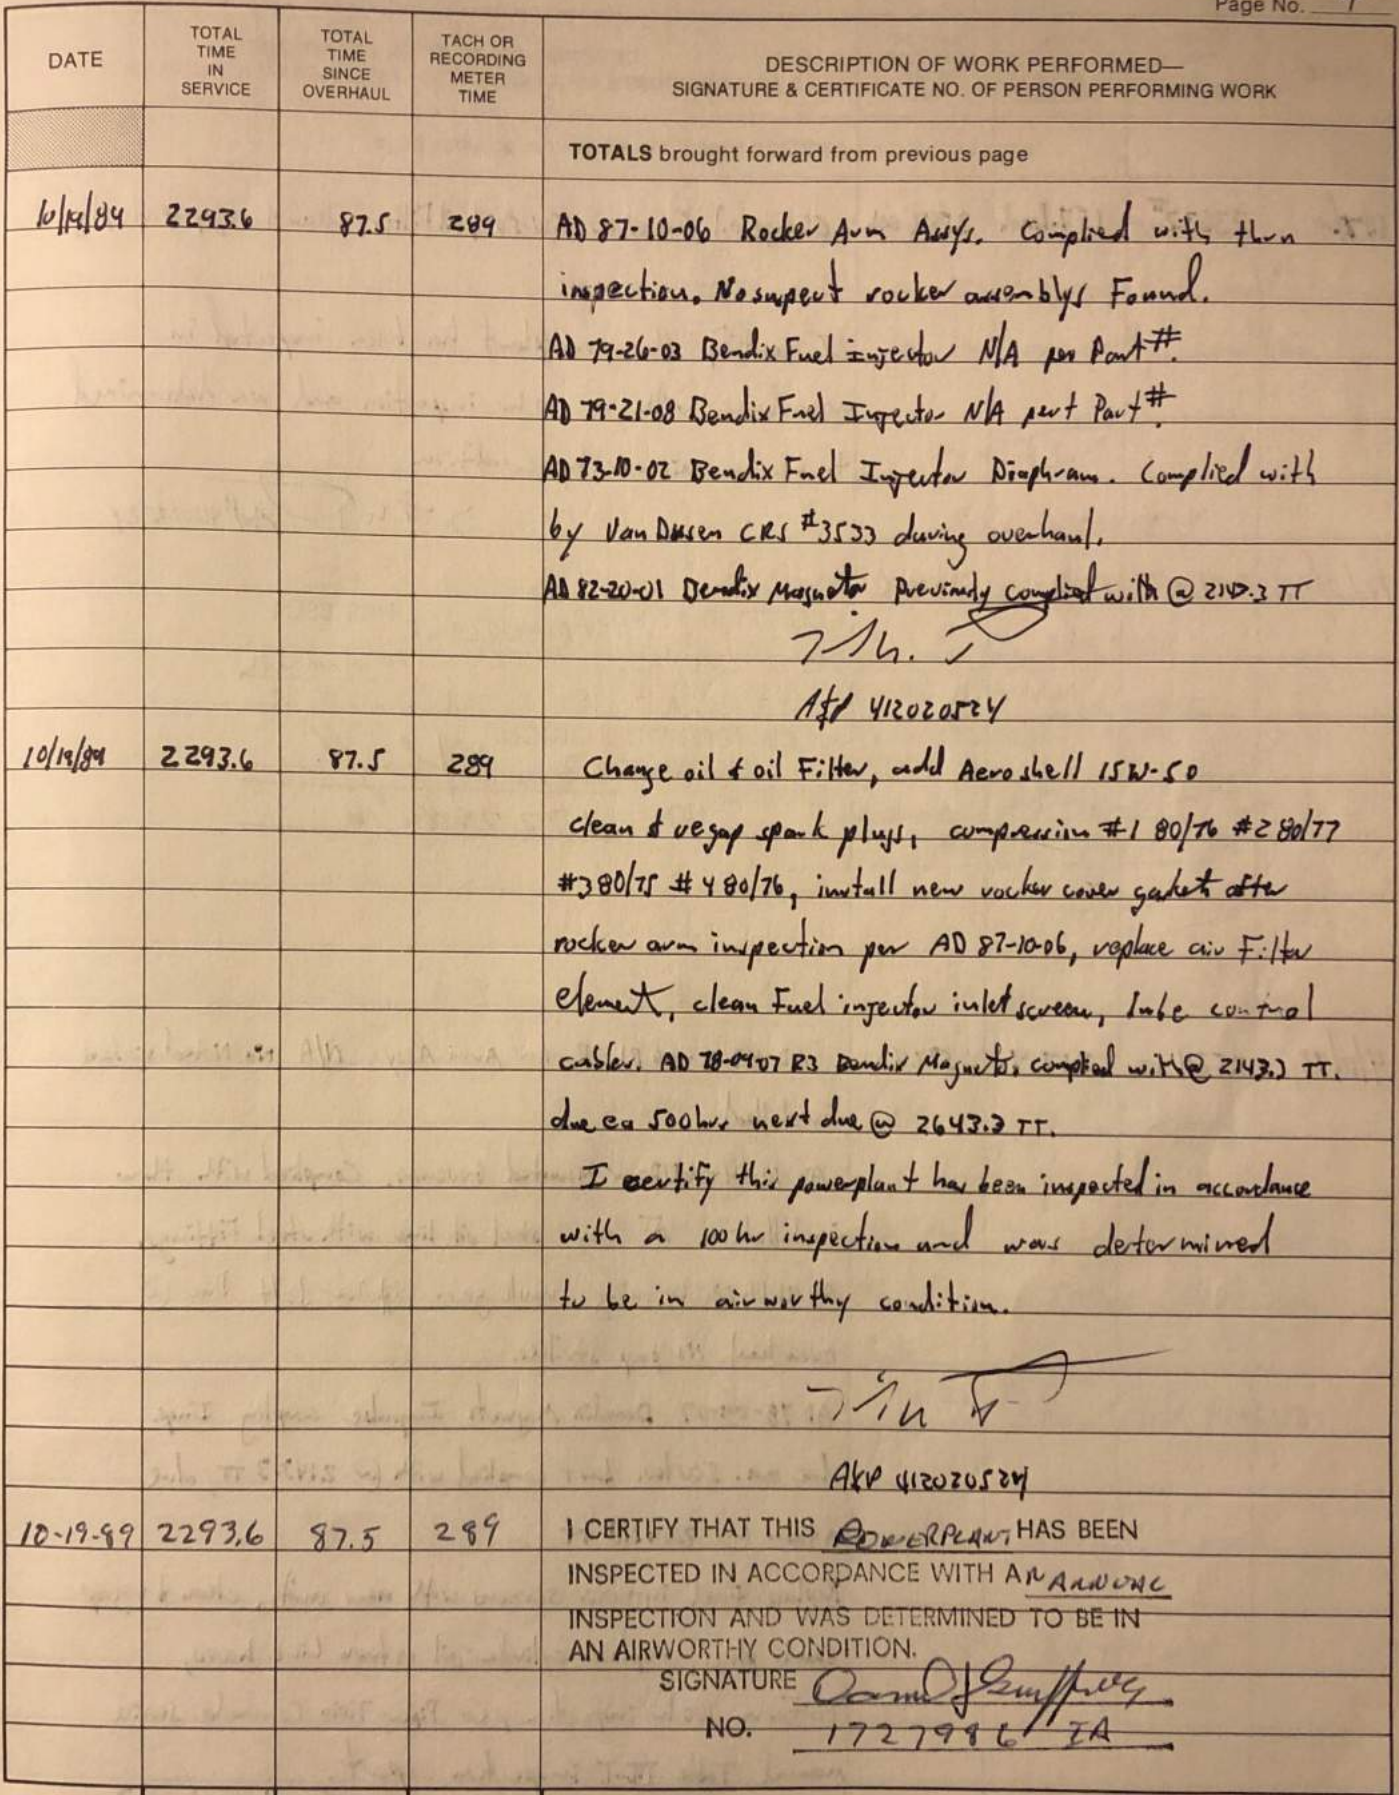 Page No. 7
DATE
TOTAL TIME IN SERVICE
TOTAL TIME SINCE OVERHAUL
TACH OR RECORDING METER TIME
DESCRIPTION OF WORK PERFORMED—
SIGNATURE & CERTIFICATE NO. OF PERSON PERFORMING WORK
TOTALS brought forward from previous page
10/19/89 2293.6 87.5 289 AD 87-10-06 Rocker Arm Assys. Complied with thru
inspection. No suspect rocker assemblys Found.
AD 79-26-03 Bendix Fuel Injector N/A per Part #.
AD 79-21-08 Bendix Fuel Injector N/A pert Part #.
AD 73-10-02 Bendix Fuel Injector Diaphram. Complied with
by Van Dusen CRS #3533 during overhaul.
AD 82-20-01 Bendix Magneto Previously complied with @ 2143.3 TT
A&P 412020524
10/19/89 2293.6 87.5 289 Change oil & oil Filter, add Aeroshell 15W-50
clean & regap spark plugs, compression #1 80/76 #2 80/77
#3 80/75 #4 80/76, install new rocker cover gaskets after
rocker arm inspection per AD 87-10-06, replace air Filter
element, clean Fuel injector inlet screen, lube control
cables. AD 78-09-07 R3 Bendix Magneto, complied with @ 2143.3 TT.
due ea 500 hrs next due @ 2643.3 TT.
I certify this powerplant has been inspected in accordance
with a 100 hr inspection and was determined
to be in airworthy condition.
A&P 412020524
10-19-89 2293.6 87.5 289 I CERTIFY THAT THIS POWERPLANT HAS BEEN
INSPECTED IN ACCORDANCE WITH AN ANNUAL
INSPECTION AND WAS DETERMINED TO BE IN
AN AIRWORTHY CONDITION.
SIGNATURE
NO. 1727986 IA